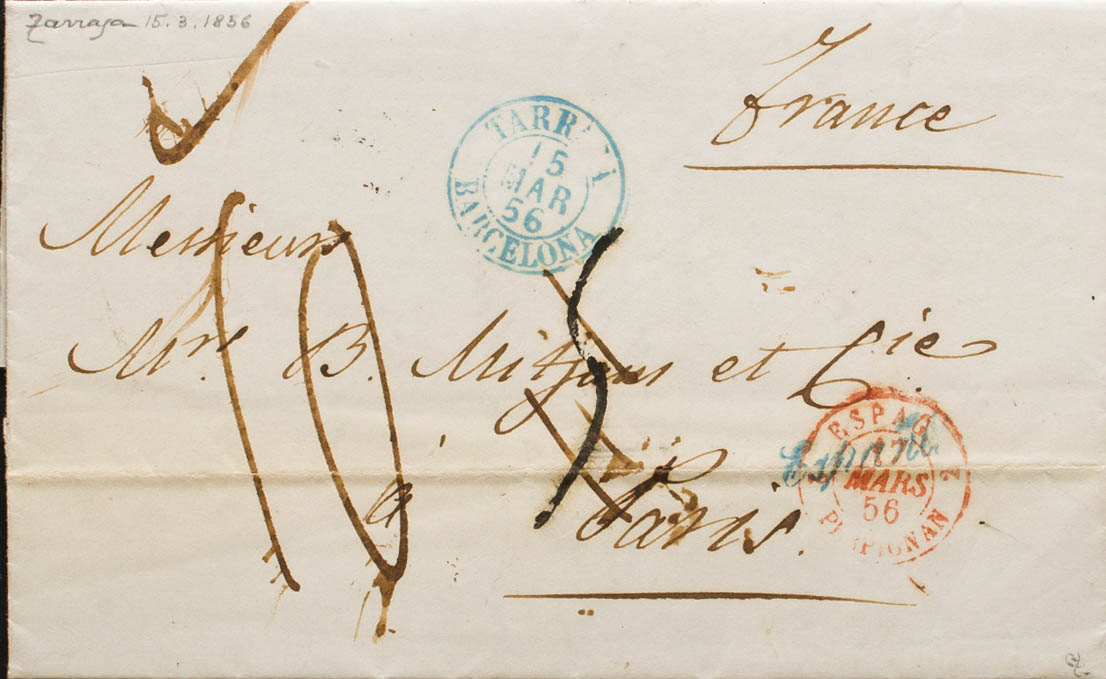 Tarrasa 15.3.1856
France
TARR
15
MAR
56
BARCELONA
Messieurs
Mrs B. Mitjans et Cie
10
à
Paris.
ESPAG
17
MARS
56
2 PERPIGNAN